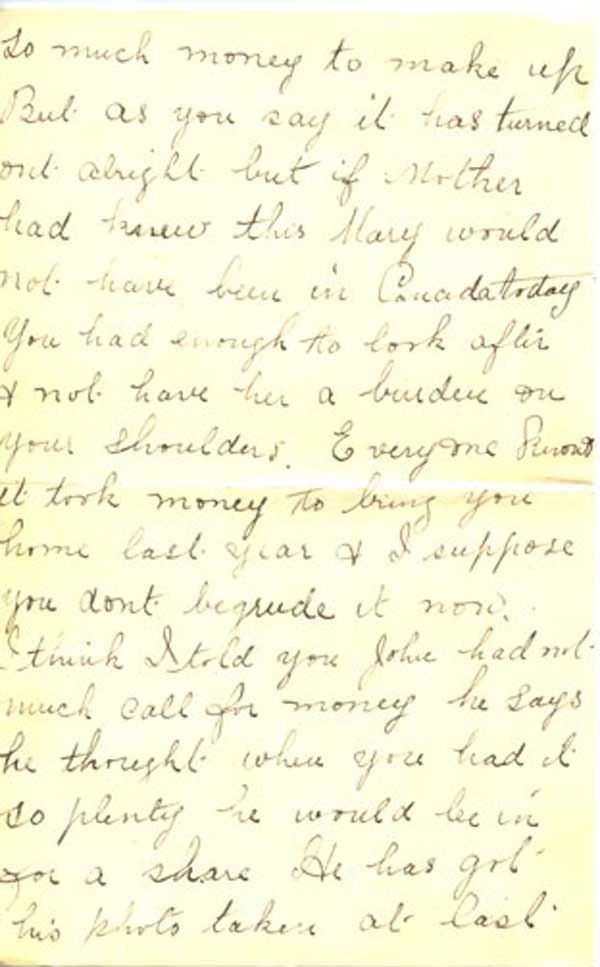 so much money to make up
But as you say it has turned
out alright but if Mother
had knew this Mary would
not have been in Canada today
You had enough to look after
& not have her a burden on
your shoulders. Everyone knows
it took money to bring you
home last year & I suppose
you dont begrude it now.
I think I told you John had not
much call for money he says
he thought when you had it
so plenty he would be in
for a share He has got
his photo taken at last